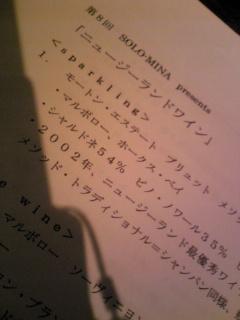 第8回 SOLO-MINA presents
「ニュージーランドワイン」
<sparkling>
1. モートン・エステート ブリュット メソッ
・マルボロー、ホークス・ベイ
・シャルドネ54% ピノ・ノワール35%
・2002年、ニュージーランド最優秀ワイ
メソッド・トラディショナル=シャンパン同様、
e wine>
マルボロー ソーヴィニヨン
ョン・ブラン